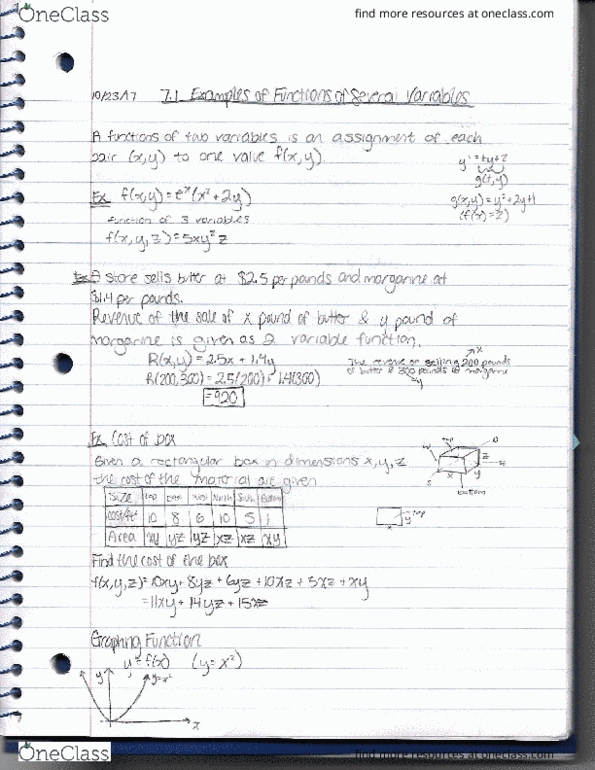 OneClass
find more resources at oneclass.com
10/23/17 7.1 Examples of Functions of Several Variables
A functions of two variables is an assignment of each
pair (x,y) to one value f(x,y).
y' = ty+2
g(t,y)
Ex f(x,y) = eˣ(x²+2y)
g(x,y)=y²+2y+1
(f(x)=z)
function of 3 variables
f(x,y,z)=5xy²z
Ex A store sells butter at $2.5 per pounds and margarine at
$1.4 per pounds.
Revenue of the sale of x pound of butter & y pound of
margarine is given as 2 variable function.
R(x,y)=2.5x + 1.4y
x
The revenue of selling 200 pounds
of butter & 300 pounds of margarine
y
R(200,300)=2.5(200)+1.4(300)
=920
Ex Cost of box
Given a rectangular box in dimensions x,y,z
the cost of the material are given
Size Top East West North South Bottom
cost/ft² 10 8 6 10 5 1
Area xy yz yz xz xz xy
N
E
W
S
x
y
z
bottom
y top
x
Find the cost of the box
f(x,y,z)=10xy+8yz+6yz+10xz+5xz+xy
=11xy+14yz+15xz
Graphing Function
y=f(x) (y=x²)
y
y=x²
x
OneClass
find more resources at oneclass.com